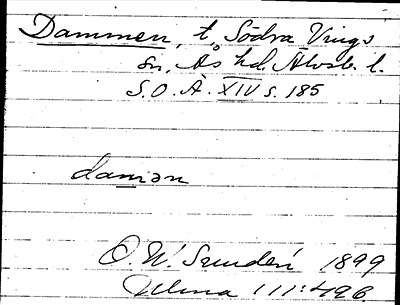 Dammen, t. Södra Vings
sn, Ås hd. Älvsb. l.
S.O.Ä. XIV s. 185
damən
O. W. Sundén 1899
Ulma 111:426